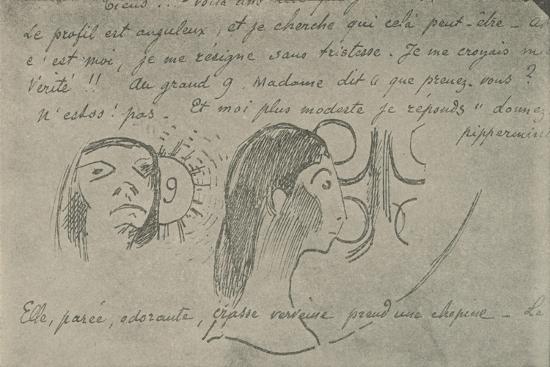 Tiens !! Voilà dans
Le profil est anguleux, et je cherche qui celà peut-être - 
c'est moi, je me résigne sans tristesse. Je me croyais
Vérité !! Au grand 9. Madame dit " que prenez-vous ?
N'estss! pas. Et moi plus modeste je réponds " donnez
pippermint
9
Elle, parée, odorante, grasse verveine prend une chopine - Le